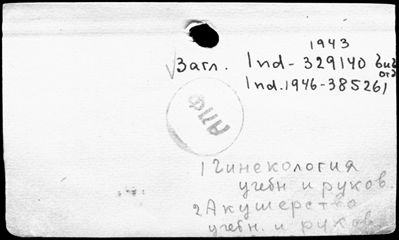 1943
Загл. Ind-329140 биб
отд
Ind.1946-385261
АПФ
1 Гинекология
учебн и руков.
2 Акушерство
учебн. и руков